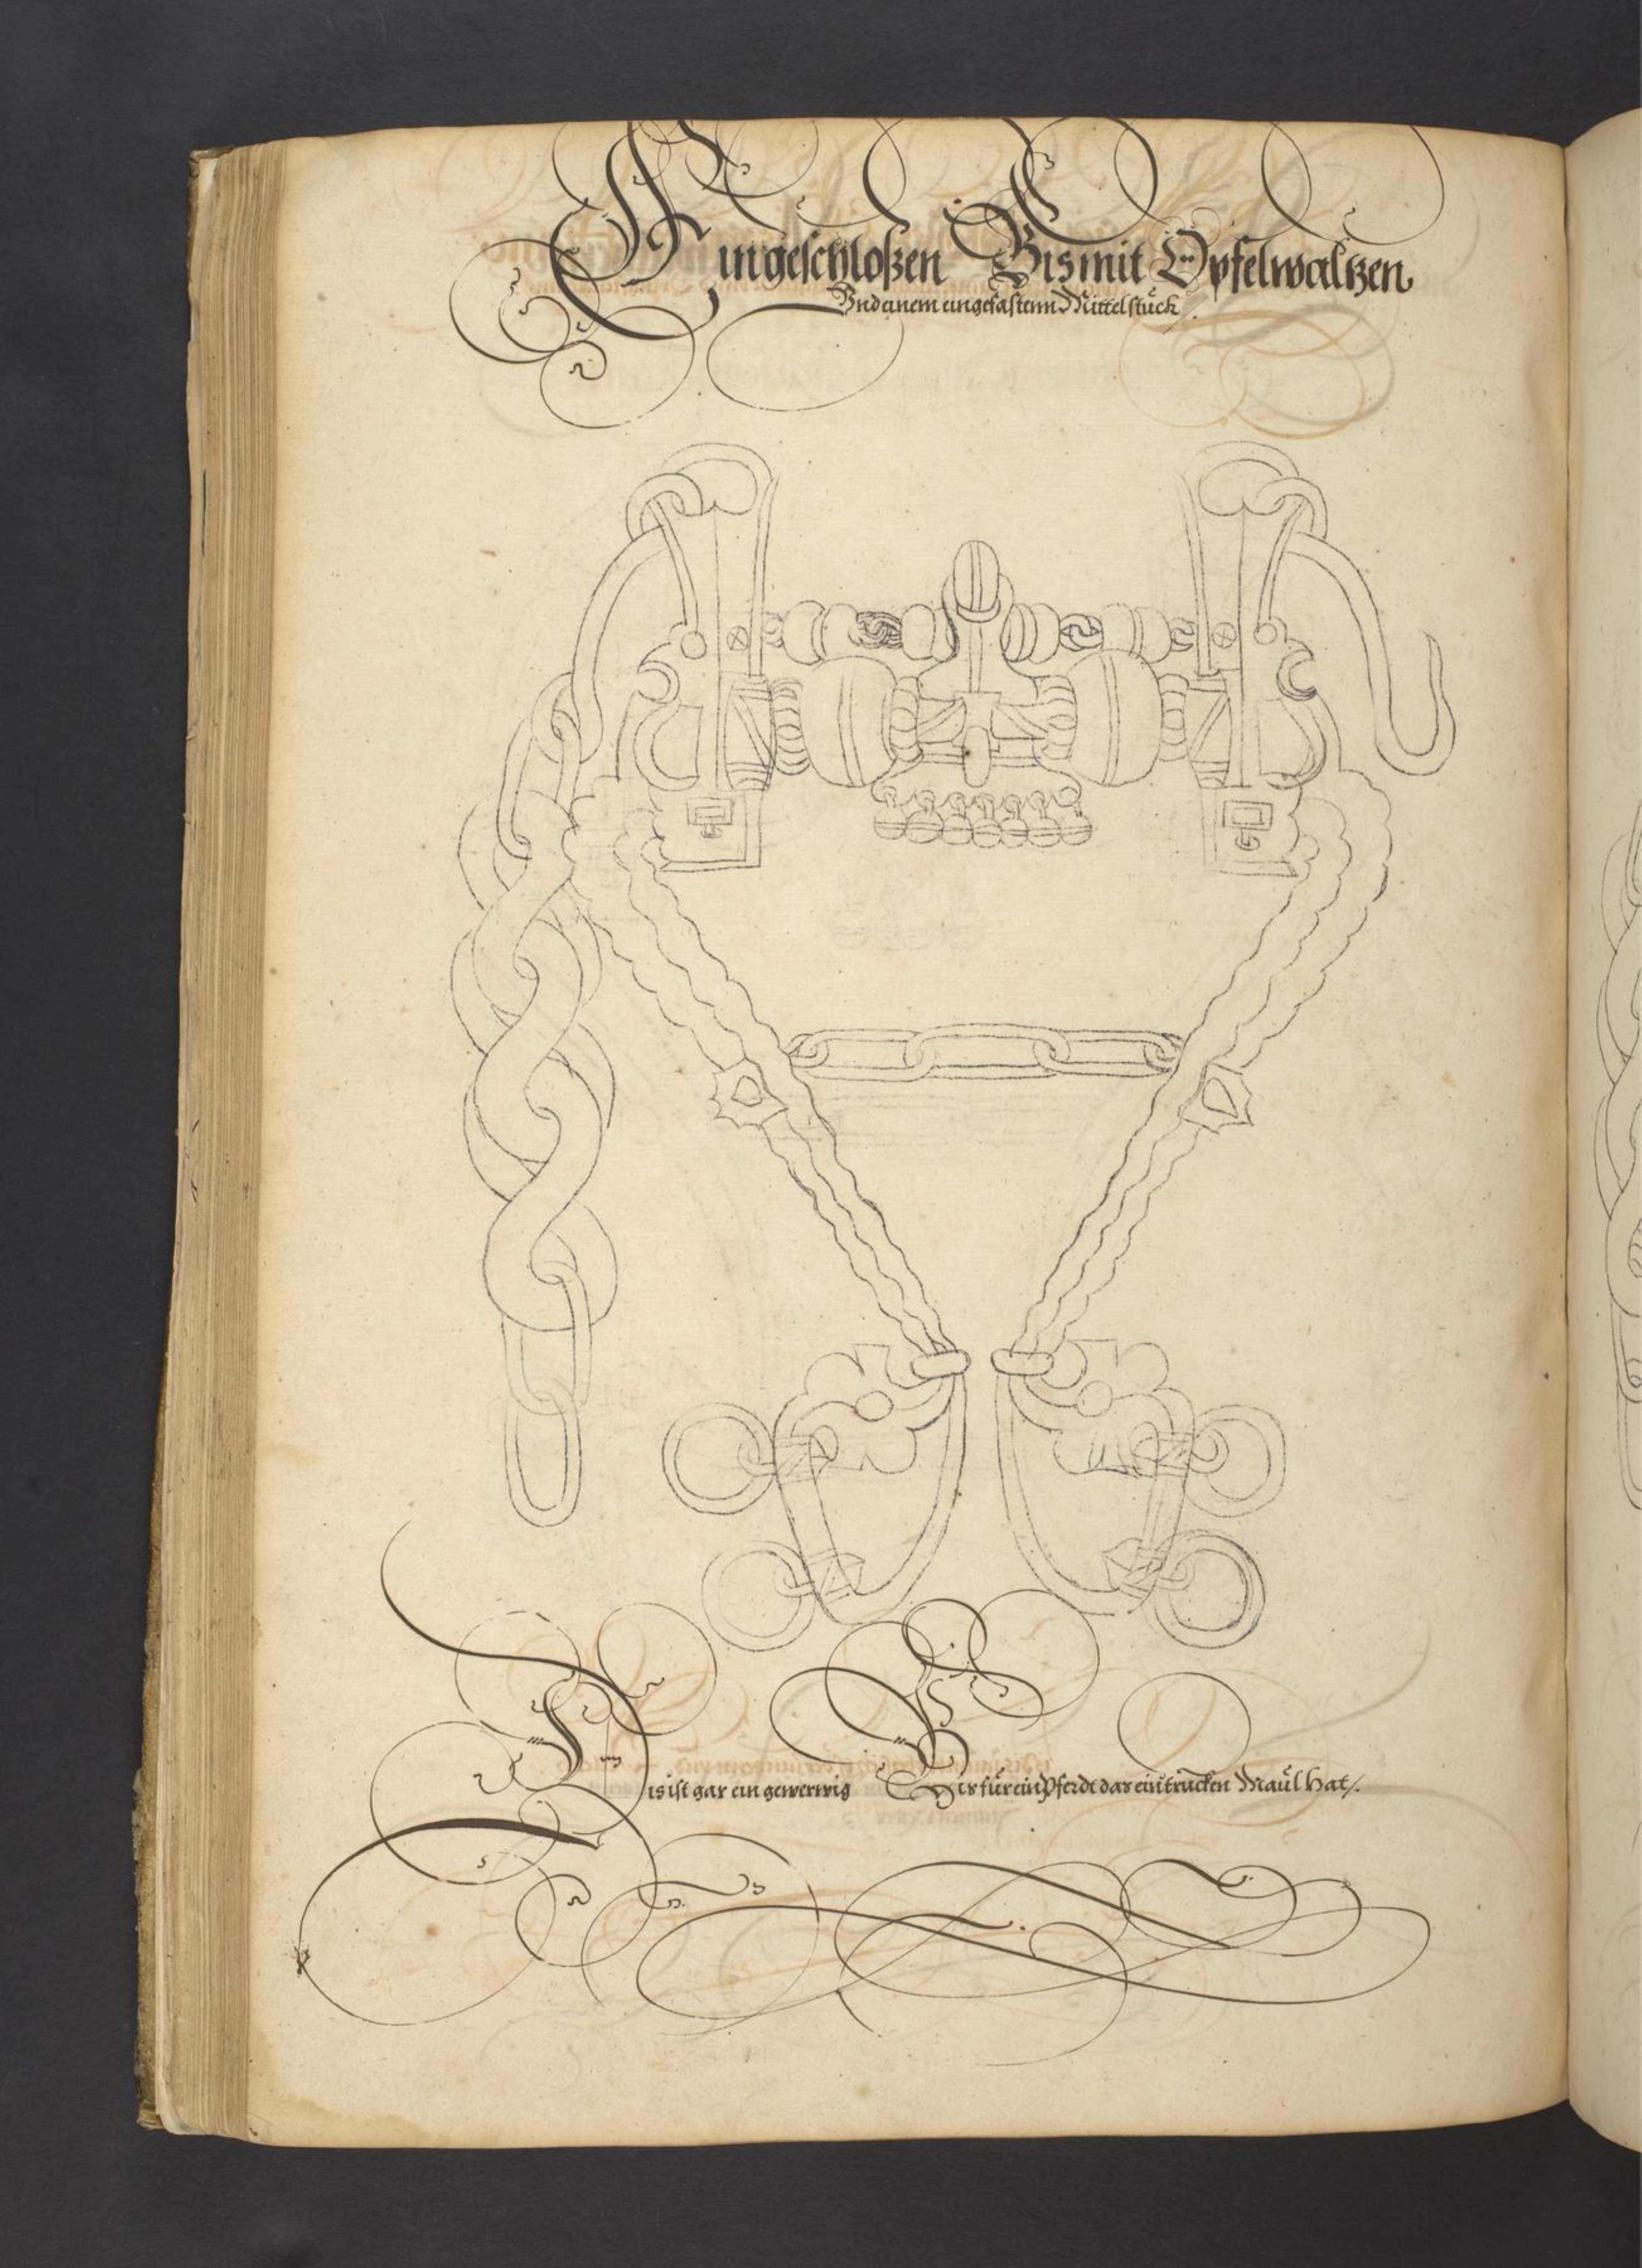 Ein geschloßen Bis mit Öpfelwaltzen
Vnd einem eingefastenn Mittelstück /.
Dis ist gar ein gewerwig Bis für ein Pferdt das ein trucken Maül hat /.